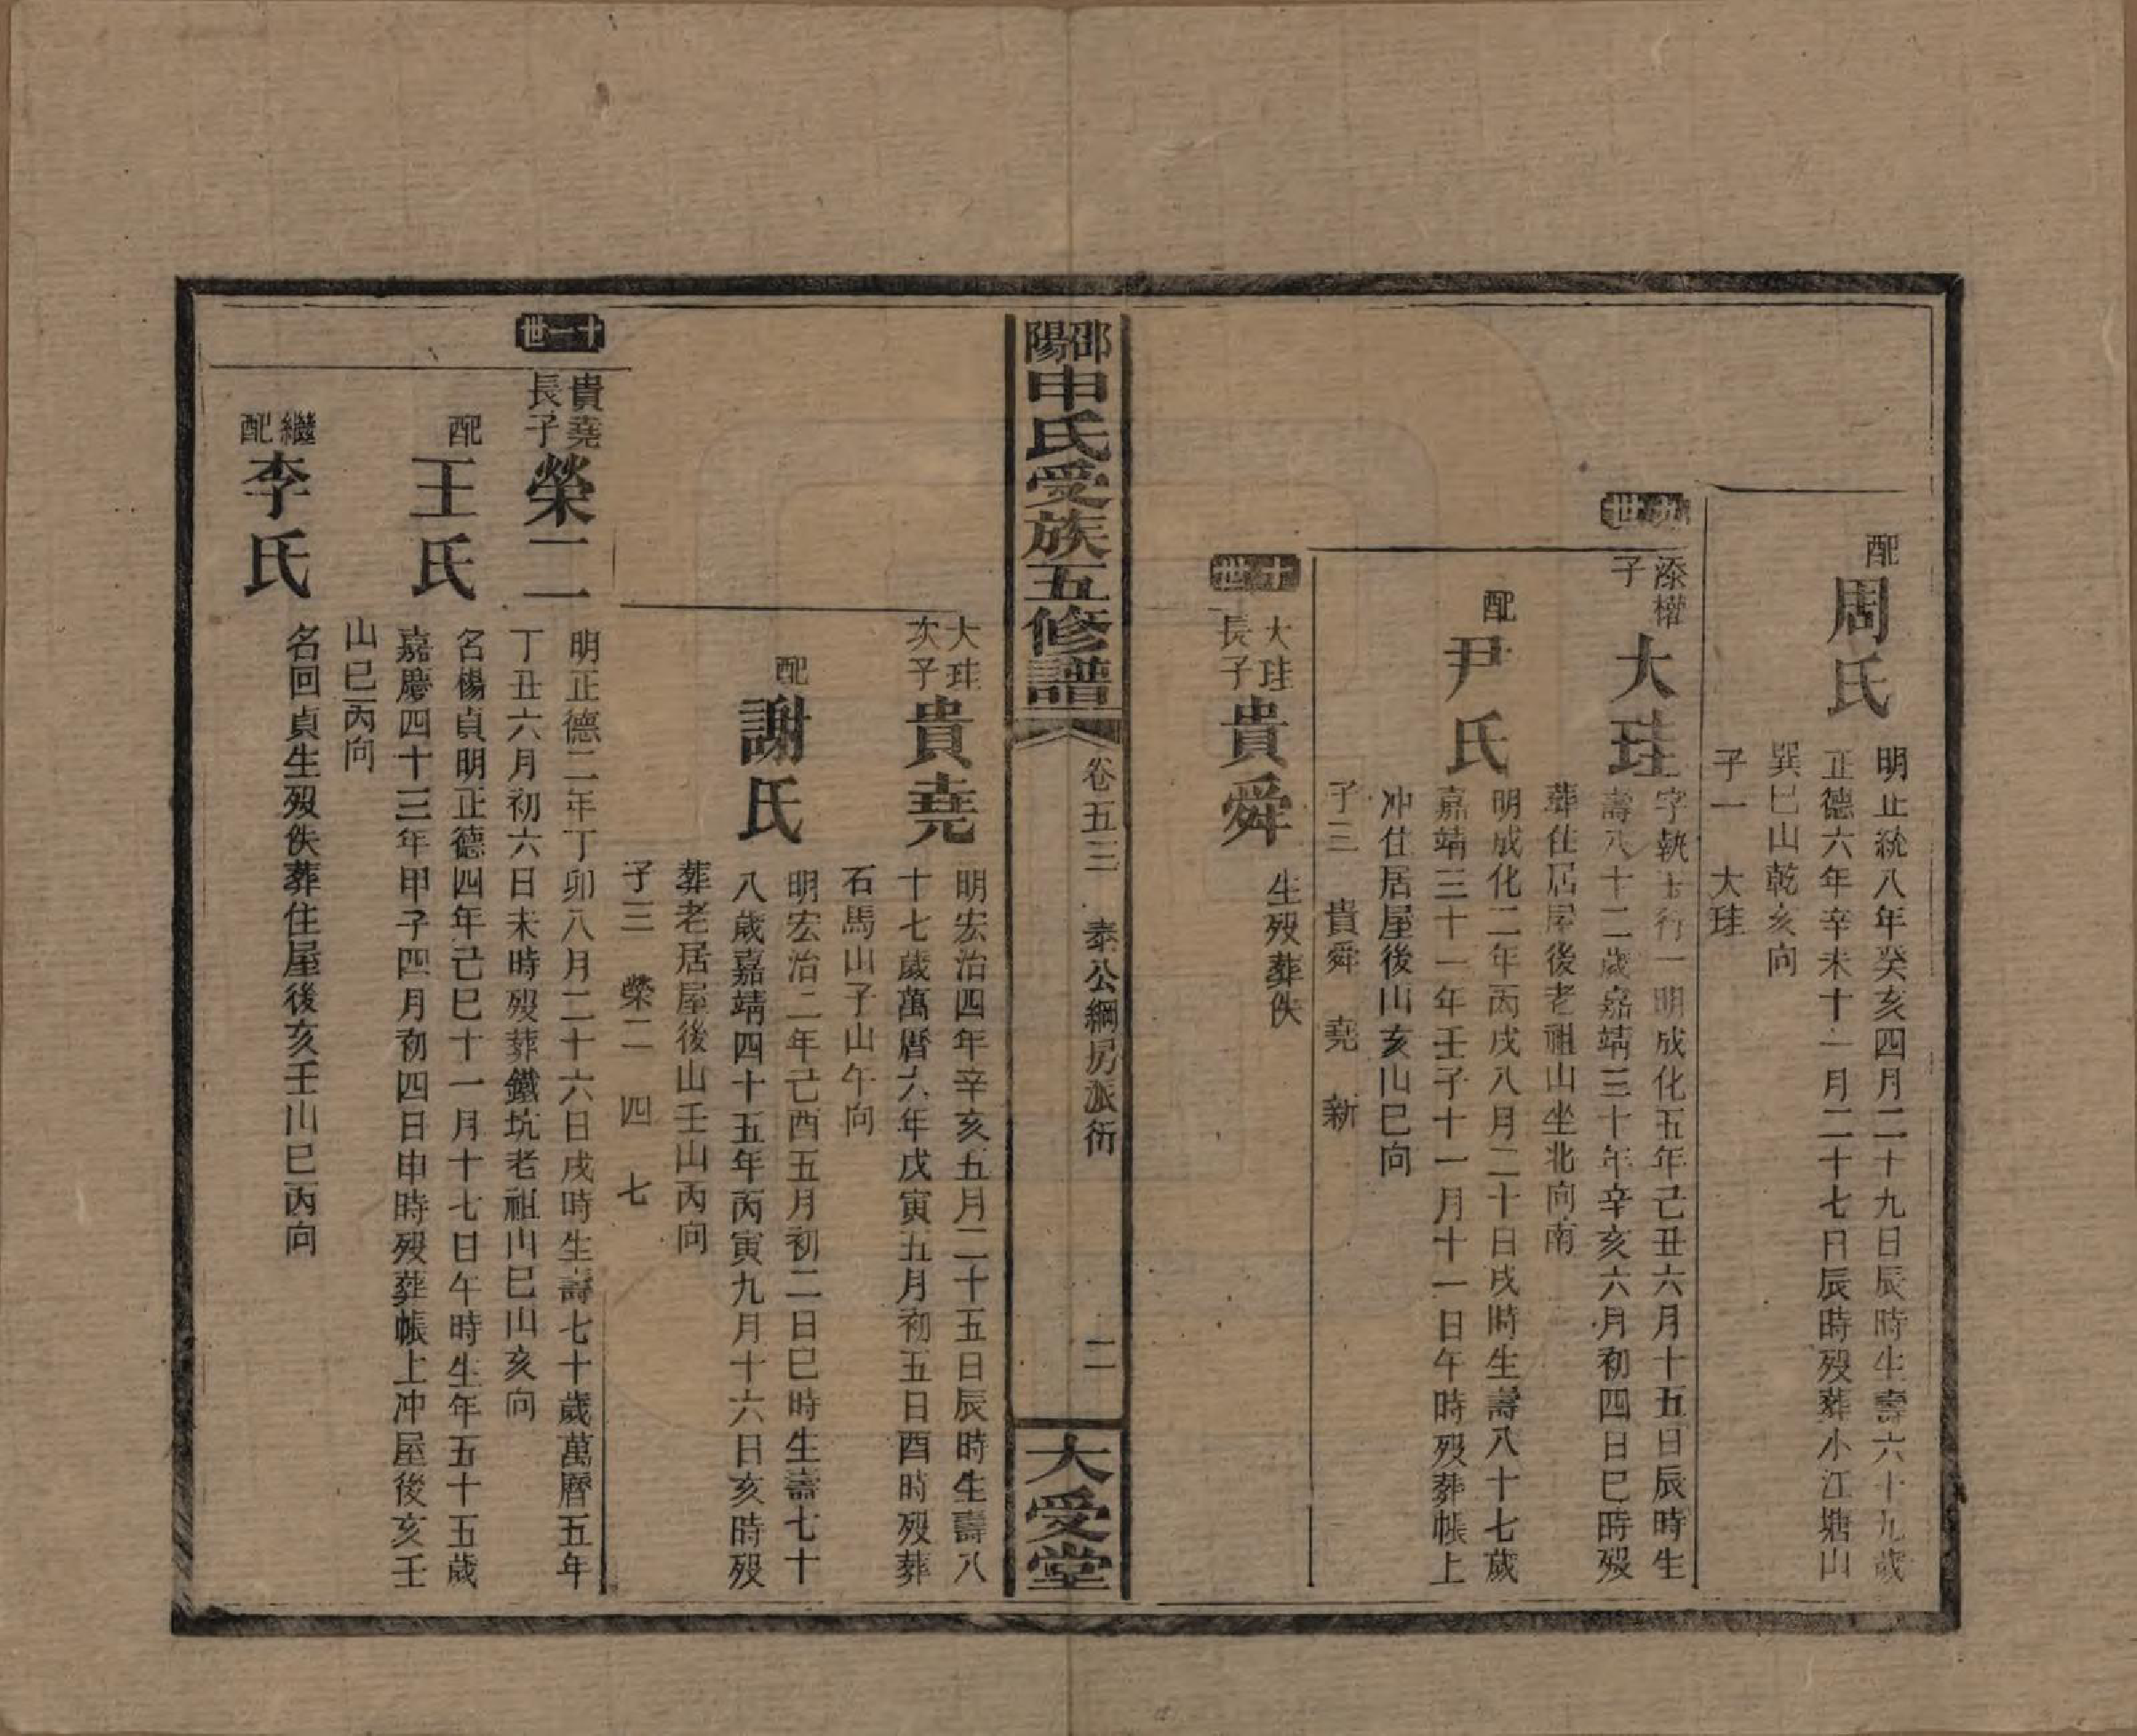 配
周氏
明正統八年癸亥四月二十九日辰時生壽六十九歲
正德六年辛未十一月二十七日辰時歿葬小江塘山
巽巳山乾亥向
子一　大珪
九世
添權
子
大珪
字執玉行一明成化五年己丑六月十五日辰時生
壽八十二歲嘉靖三十年辛亥六月初四日巳時歿
葬住居屋後老祖山坐北向南
配
尹氏
明成化二年丙戌八月二十日戌時生壽八十七歲
嘉靖三十一年壬子十一月十一日午時歿葬帳上
冲住居屋後山亥山巳向
子三　貴舜　堯　新
十世
大珪
長子
貴舜
生歿葬佚
邵陽申氏受族五修譜
卷五三　泰公綱房派衍
二
大受堂
大珪
次子
貴堯
明宏治四年辛亥五月二十五日辰時生壽八
十七歲萬曆六年戊寅五月初五日酉時歿葬
石馬山子山午向
配
謝氏
明宏治二年己酉五月初二日巳時生壽七十
八歲嘉靖四十五年丙寅九月十六日亥時歿
葬老居屋後山壬山丙向
子三　榮二　四　七
十一世
貴堯
長子
榮二
明正德二年丁卯八月二十六日戌時生壽七十歲萬曆五年
丁丑六月初六日未時歿葬鐵坑老祖山巳山亥向
配
王氏
名楊貞明正德四年己巳十一月十七日午時生年五十五歲
嘉慶四十三年甲子四月初四日申時歿葬帳上冲屋後亥壬
山巳丙向
繼
配
李氏
名回貞生歿佚葬住屋後亥壬山巳丙向